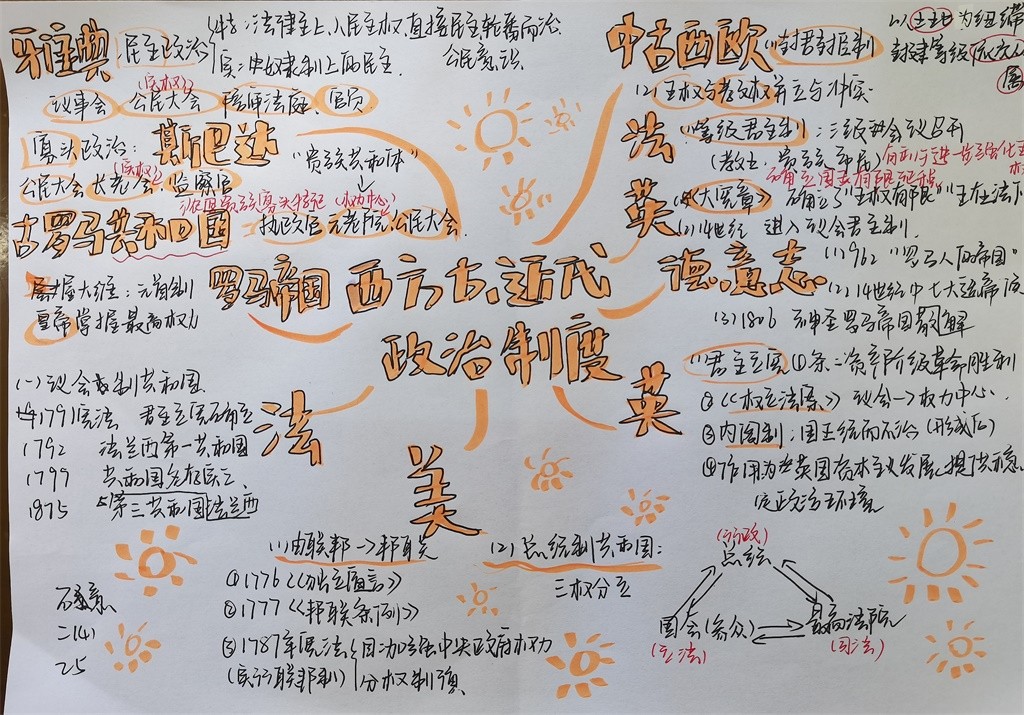 雅典 民主政治
特：法律至上，人民主权，直接民主，轮番而治
公民意识
实：奴隶制上的民主
(实权)
议事会 公民大会 陪审法庭 官员
寡头政治：斯巴达
(实权)
公民大会 长老会 监察官
"贵族共和体"
古罗马共和国
执政官 元老院 公民大会
罗马帝国
屋大维：元首制
皇帝掌握最高权力
西方古、近代
政治制度
中古西欧
(1) 土地为纽带
封建等级
(2) 王权与教权并立与冲突
法
等级君主制：三级会议召开
(教士、贵族、市民)
英
《大宪章》
确立了"王权有限""王在法下
(2) 14世纪 进入议会君主制
德、意志
(1) 962 "罗马人的帝国"
(2) 14世纪中七大选帝侯
(3) 1806 神圣罗马帝国散解
英
(1) 君主立宪 ①条：资产阶级革命胜利
②《权利法案》议会→权力中心
③内阁制：国王统而不治（形成后）
④作用为英国资本主义发展提供稳
定政治环境
法
(一) 议会制共和国
1791宪法 君主立宪确立
1792 法兰西第一共和国
1799
1875 第三共和国 法兰西
美
(1) 由联邦→邦联
①1776《独立宣言》
②1777《邦联条例》
③1787年宪法
(实行联邦制)
因：加强中央政府权力
分权制衡
(2) 总统制共和国：
三权分立
(行政)
总统
国会(参众)
(立法)
最高法院
(司法)
二(4)
25